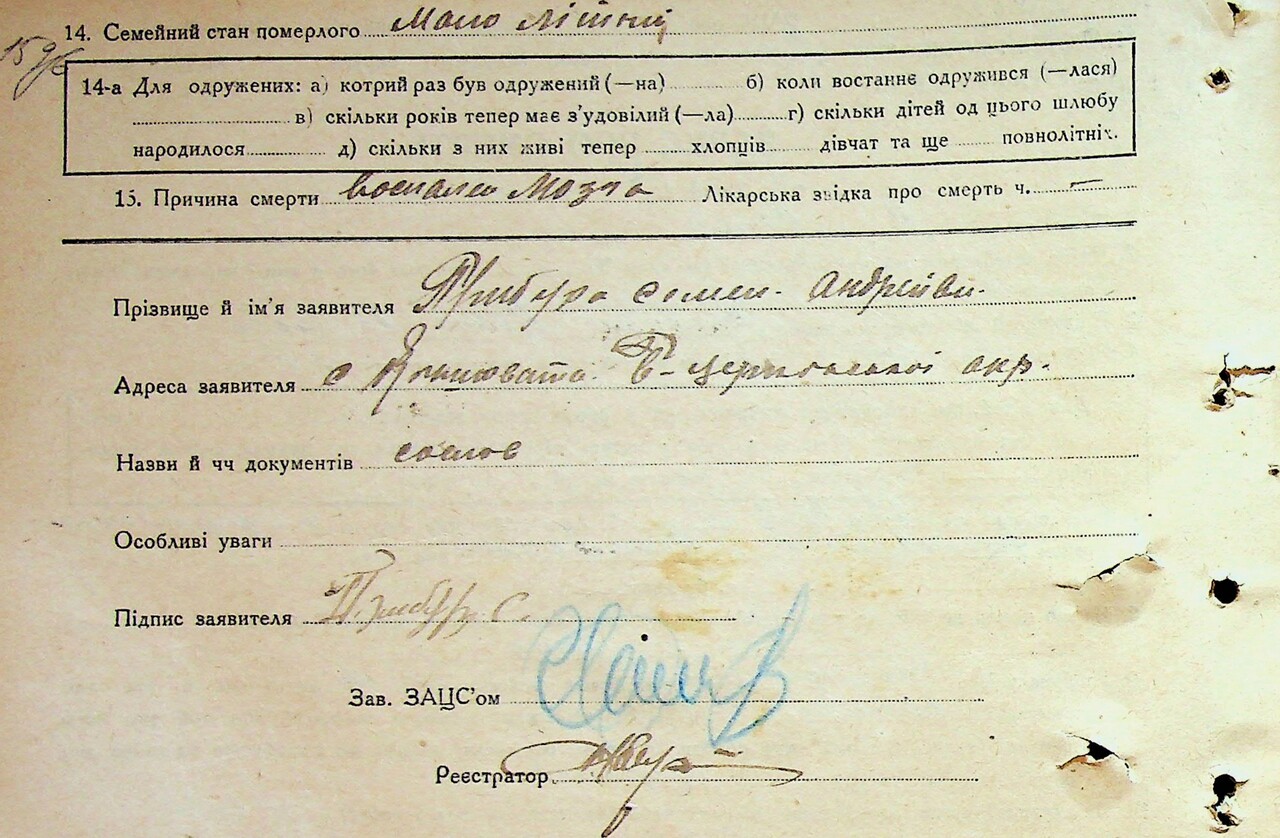 14. Семейний стан померлого Мало Літній
14-а Для одружених: а) котрий раз був одружений (—на) б) коли востаннє одружився (—лася)
в) скільки років тепер має з’удовілий (—ла) г) скільки дітей од цього шлюбу
народилося д) скільки з них живі тепер хлопців дівчат та ще повнолітніх.
15. Причина смерти Воспален Мозга Лікарська звідка про смерть ч. —
Прізвище й ім’я заявителя Семен Андрейви
Адреса заявителя с Б-церковської окр.
Назви й чч документів сослов
Особливі уваги
Підпис заявителя С.
Зав. ЗАЦС’ом
Реєстратор